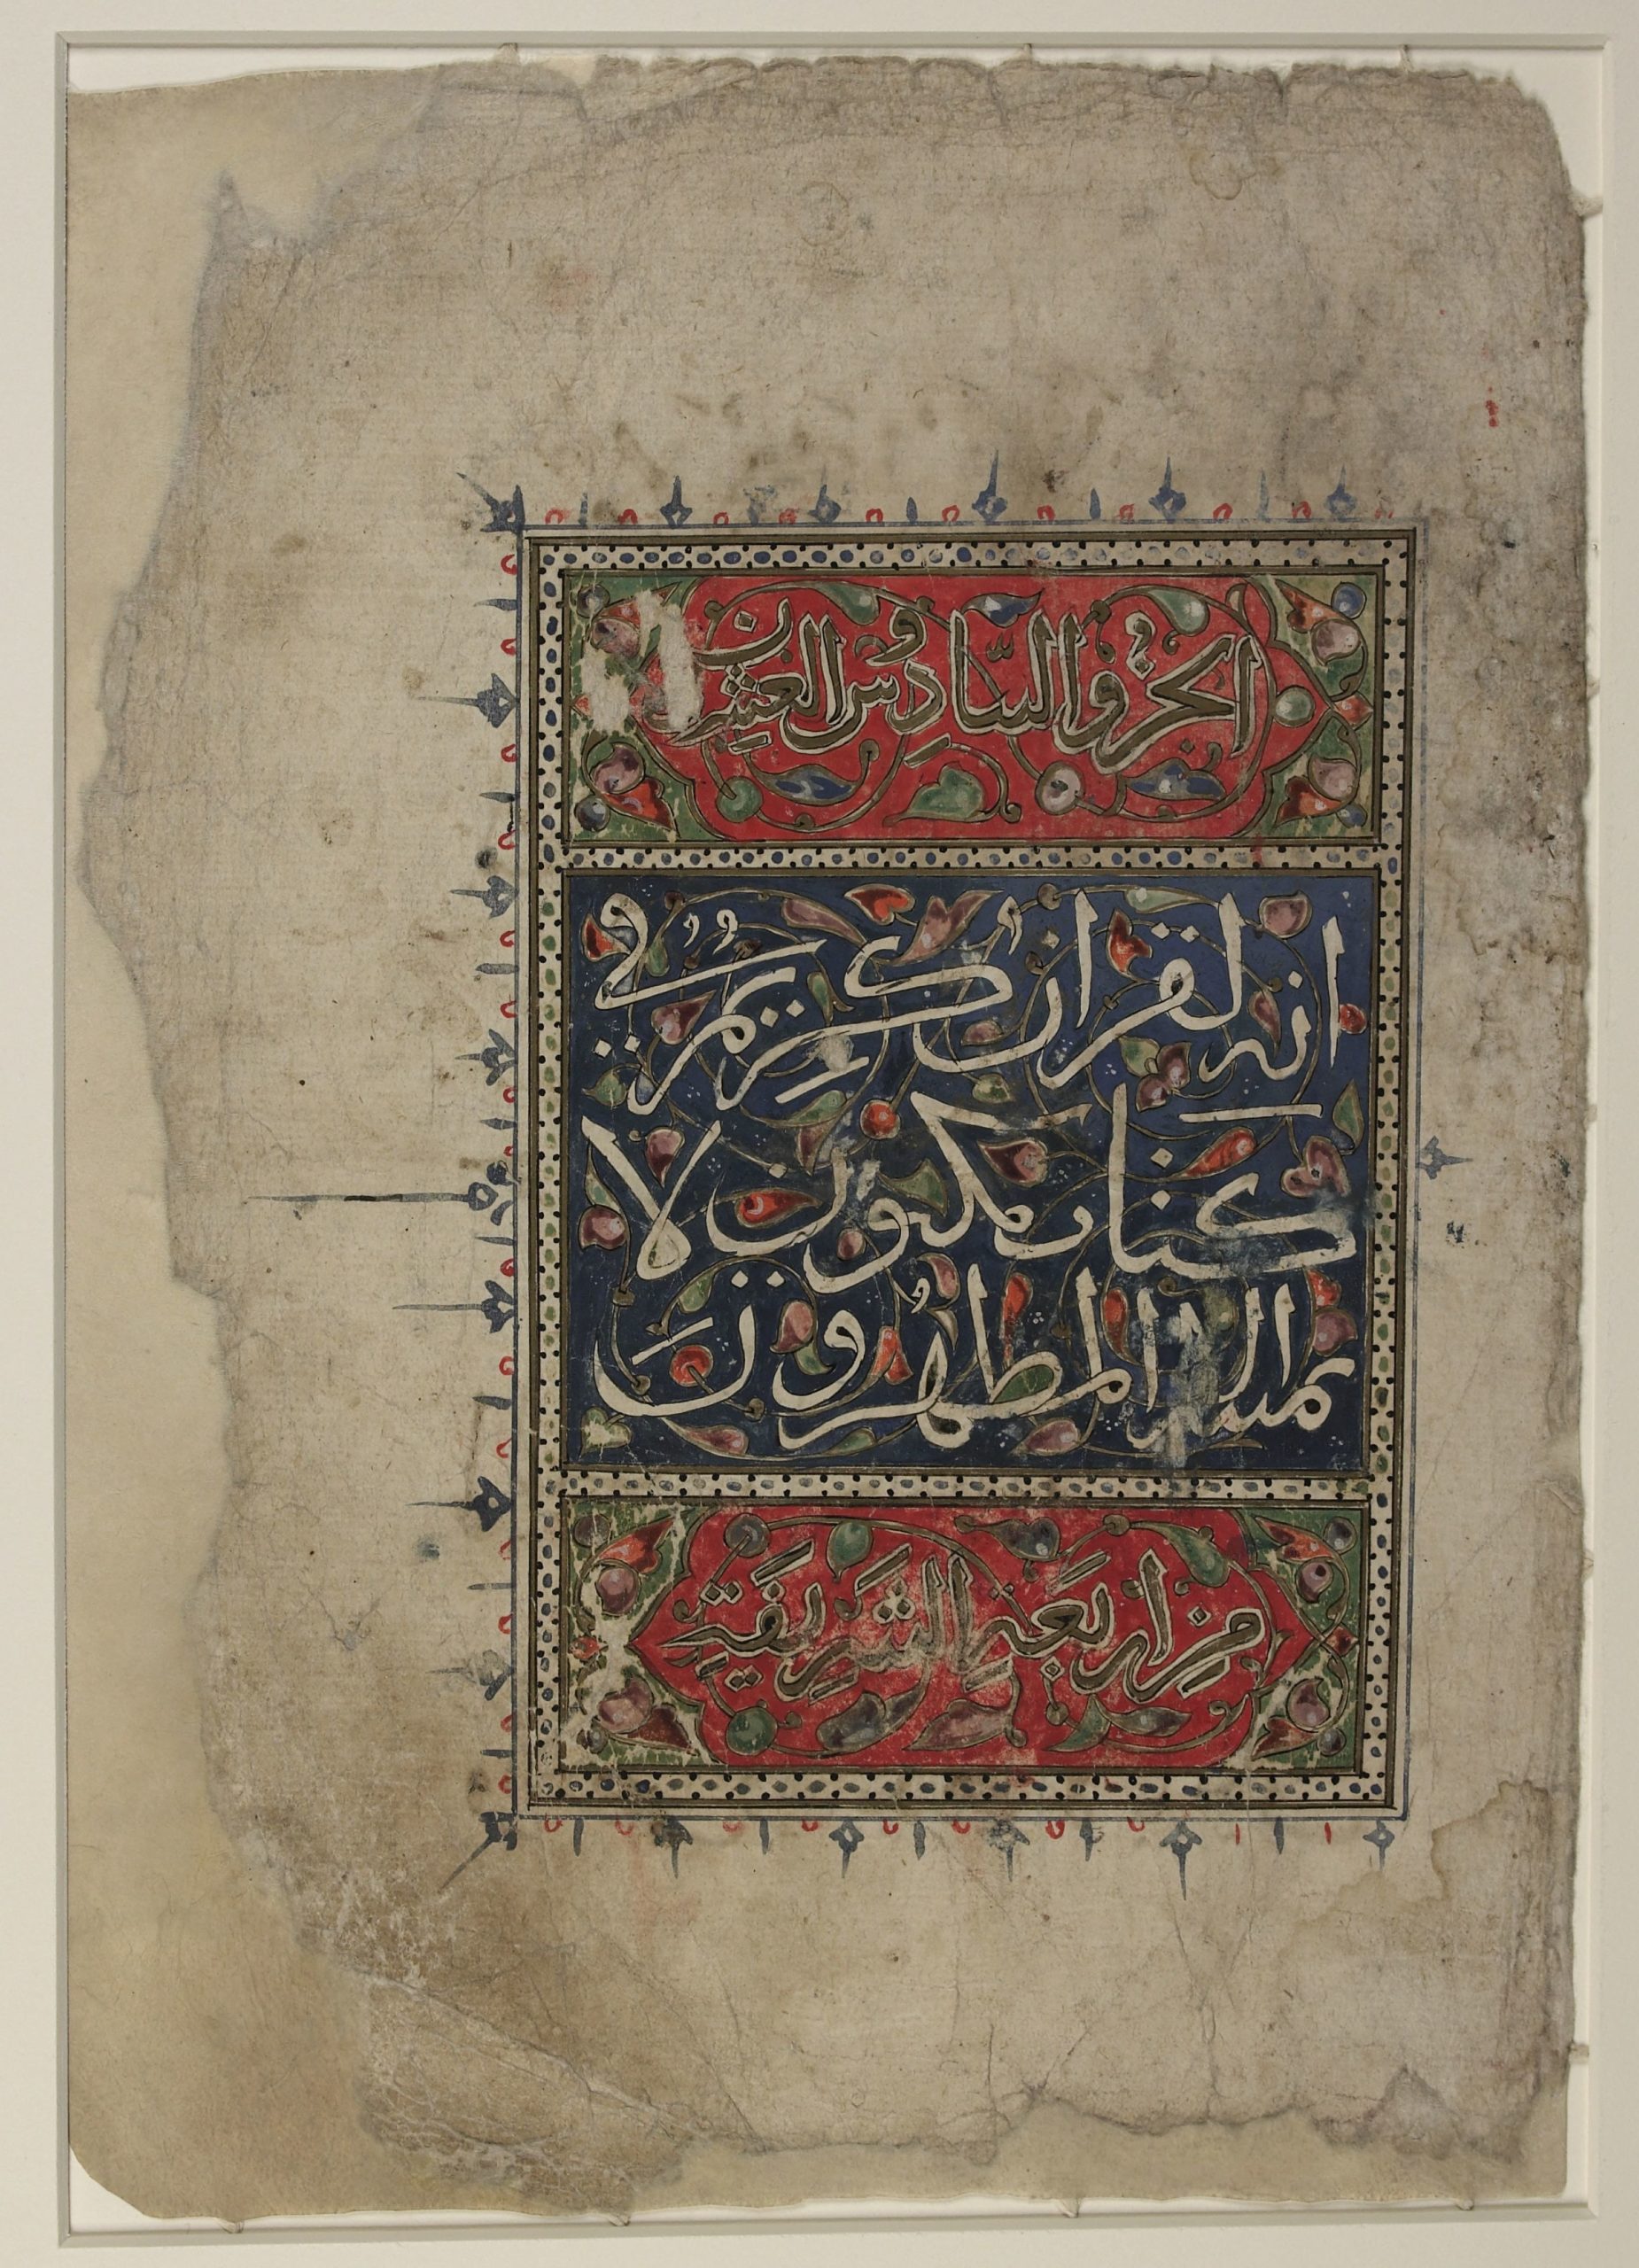 الجزو السادس و العشرن
انه لقرآن كريم في
كتاب مكنون لا
يمسه الا المطهرون
من اربعة الشريفة